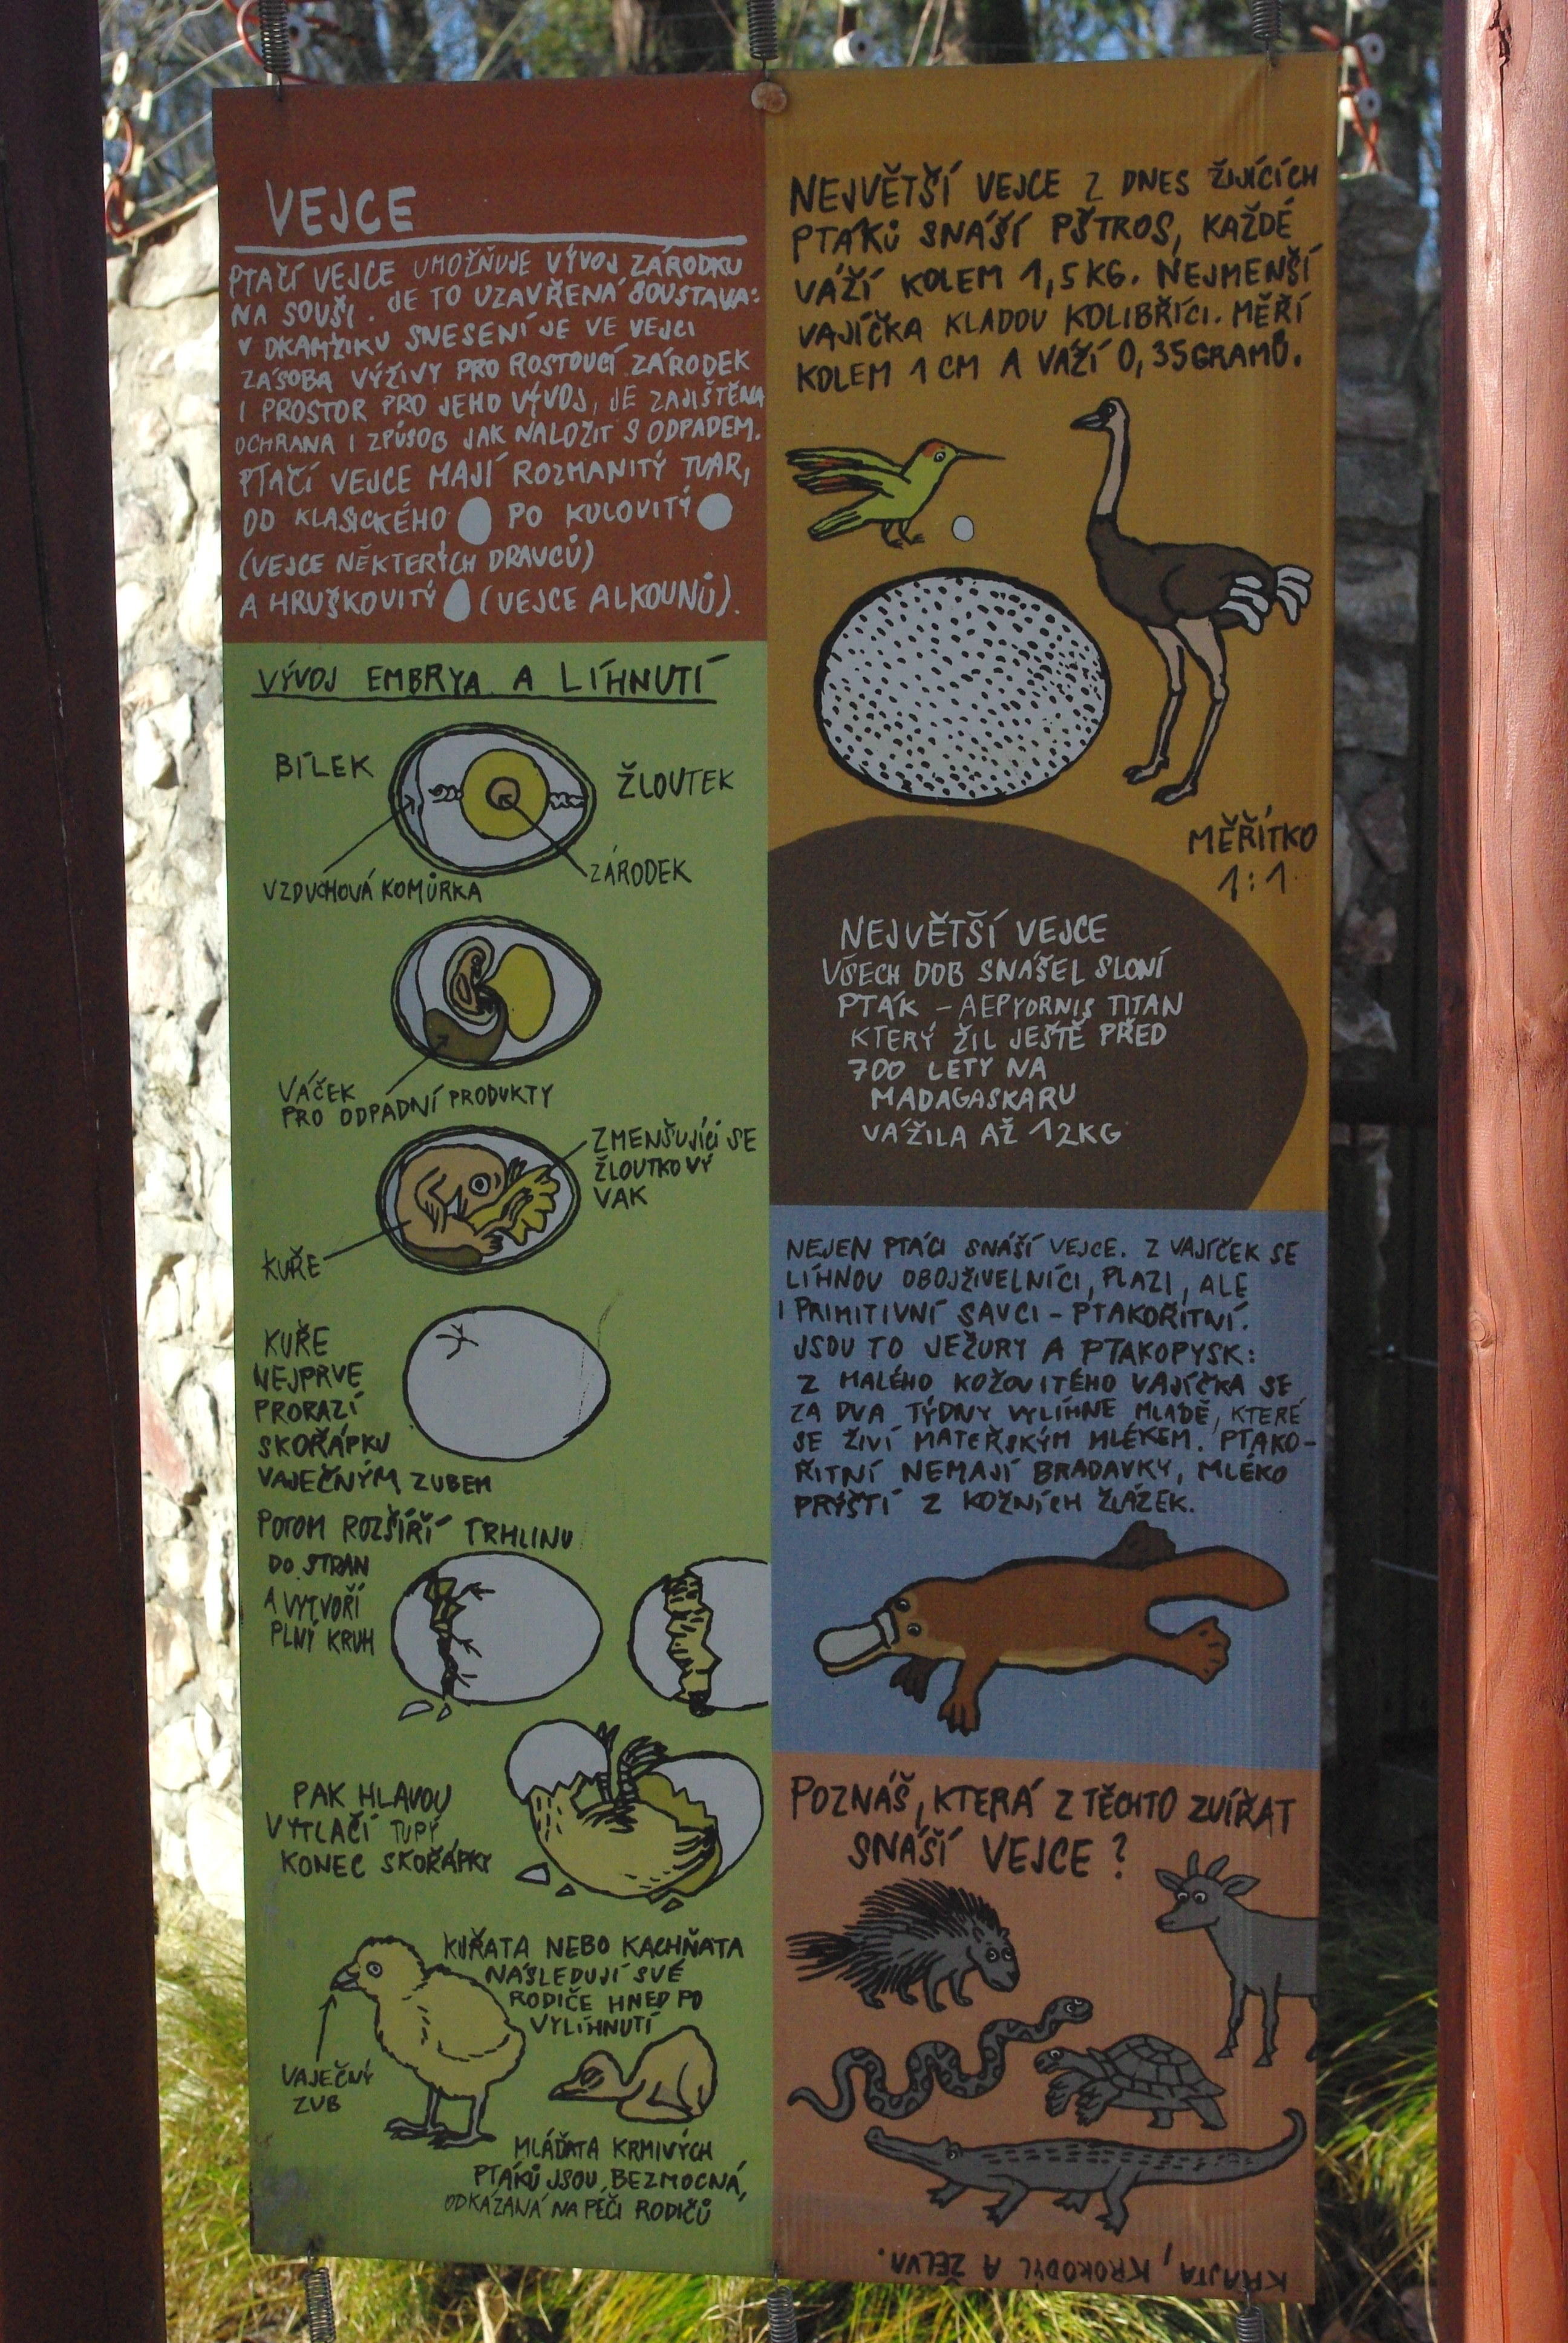 VEJCE
PTAČÍ VEJCE UMOŽŇUJE VÝVOJ ZÁRODKU
NA SOUŠI. JE TO UZAVŘENÁ SOUSTAVA:
V OKAMŽIKU SNESENÍ JE VE VEJCI
ZÁSOBA VÝŽIVY PRO ROSTOUCÍ ZÁRODEK
I PROSTOR PRO JEHO VÝVOJ, JE ZAJIŠTĚNA
OCHRANA I ZPŮSOB JAK NALOŽIT S ODPADEM.
PTAČÍ VEJCE MAJÍ ROZMANITÝ TVAR,
OD KLASICKÉHO PO KULOVITÝ
(VEJCE NĚKTERÝCH DRAVCŮ)
A HRUŠKOVITÝ (VEJCE ALKOUNŮ).
VÝVOJ EMBRYA A LÍHNUTÍ
BÍLEK
ŽLOUTEK
VZDUCHOVÁ KOMŮRKA
ZÁRODEK
VÁČEK
PRO ODPADNÍ PRODUKTY
ZMENŠUJÍCÍ SE
ŽLOUTKOVÝ
VAK
KUŘE
KUŘE
NEJPRVE
PRORAZÍ
SKOŘÁPKU
VAJEČNÝM ZUBEM
POTOM ROZŠÍŘÍ TRHLINU
DO STRAN
A VYTVOŘÍ
PLNÝ KRUH
PAK HLAVOU
VYTLAČÍ TUPÝ
KONEC SKOŘÁPKY
KUŘATA NEBO KACHŇATA
NÁSLEDUJÍ SVÉ
RODIČE HNED PO
VYLÍHNUTÍ
VAJEČNÝ
ZUB
MLÁĎATA KRMIVÝCH
PTÁKŮ JSOU BEZMOCNÁ,
ODKÁZANÁ NA PÉČI RODIČŮ
NEJVĚTŠÍ VEJCE Z DNES ŽIJÍCÍCH
PTÁKŮ SNÁŠÍ PŠTROS, KAŽDÉ
VÁŽÍ KOLEM 1,5 KG. NEJMENŠÍ
VAJÍČKA KLADOU KOLIBŘÍCI. MĚŘÍ
KOLEM 1 CM A VÁŽÍ 0,35 GRAMŮ.
MĚŘÍTKO
1:1
NEJVĚTŠÍ VEJCE
VŠECH DOB SNÁŠEL SLONÍ
PTÁK - AEPYORNIS TITAN
KTERÝ ŽIL JEŠTĚ PŘED
700 LETY NA
MADAGASKARU
VÁŽILA AŽ 12KG
NEJEN PTÁCI SNÁŠÍ VEJCE. Z VAJÍČEK SE
LÍHNOU OBOJŽIVELNÍCI, PLAZI, ALE
I PRIMITIVNÍ SAVCI - PTAKOŘITNÍ.
JSOU TO JEŽURY A PTAKOPYSK:
Z MALÉHO KOŽOVITÉHO VAJÍČKA SE
ZA DVA TÝDNY VYLÍHNE MLÁDĚ, KTERÉ
SE ŽIVÍ MATEŘSKÝM MLÉKEM. PTAKO-
ŘITNÍ NEMAJÍ BRADAVKY, MLÉKO
PRÝŠTÍ Z KOŽNÍCH ŽLÁZEK.
POZNÁŠ, KTERÁ Z TĚCHTO ZVÍŘAT
SNÁŠÍ VEJCE?
KRAJTA, KROKODÝL A ŽELVA.